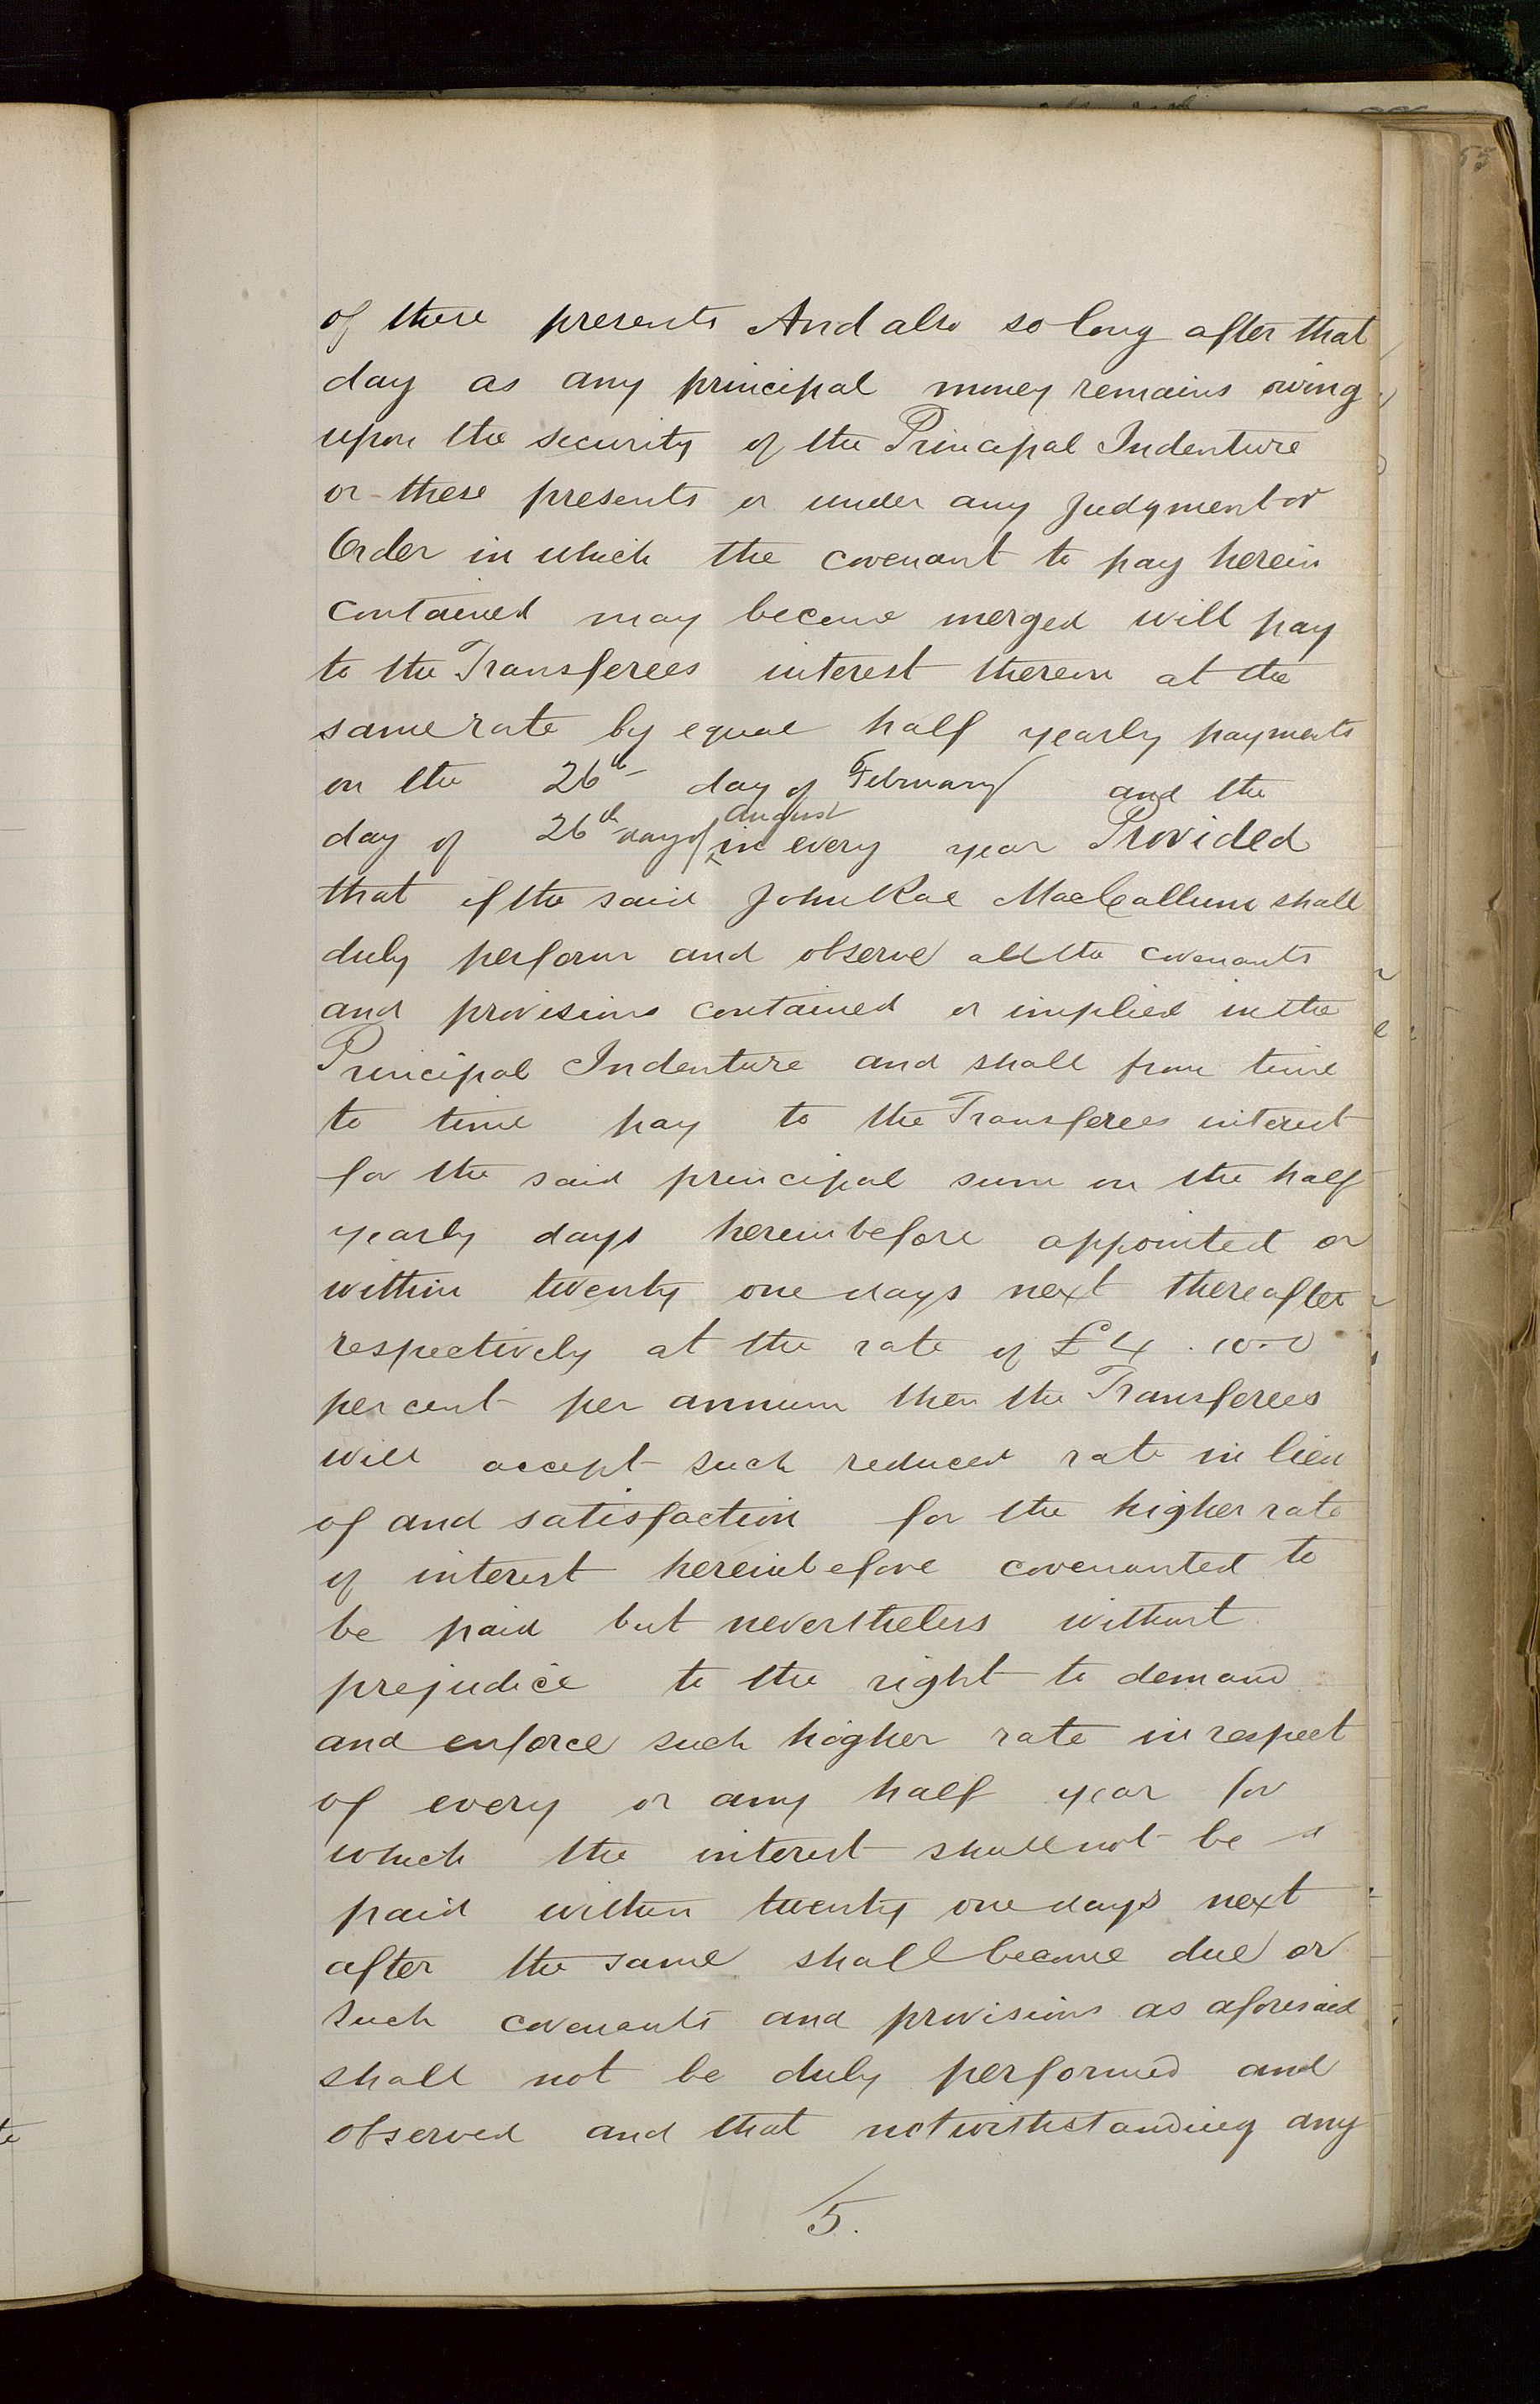 of these presents And also so long after that
day as any principal money remains owing
upon the security of the Principal Indenture
or these presents or under any Judgment or
Order in which the covenant to pay herein
contained may become merged will pay
to the Transferees interest thereon at the
same rate by equal half yearly payments
on the 26th day of February and the
day of 26th day of August in every year Provided
that if the said John Rae MacCallum shall
duly perform and observe all the covenants
and provisions contained or implied in the
Principal Indenture and shall from time
to time pay to the Transferees interest
for the said principal sum on the half
yearly days hereinbefore appointed or
within twenty one days next thereafter
respectively at the rate of £4.10.0
per cent per annum then the Transferees
will accept such reduced rate in lieu
of and satisfaction for the higher rate
of interest hereinbefore covenanted to
be paid but nevertheless without
prejudice to the right to demand
and enforce such higher rate in respect
of every or any half year for
which the interest shall not be
paid within twenty one days next
after the same shall become due or
such covenants and provisions as aforesaid
shall not be duly performed and
observed and that notwithstanding any
5.